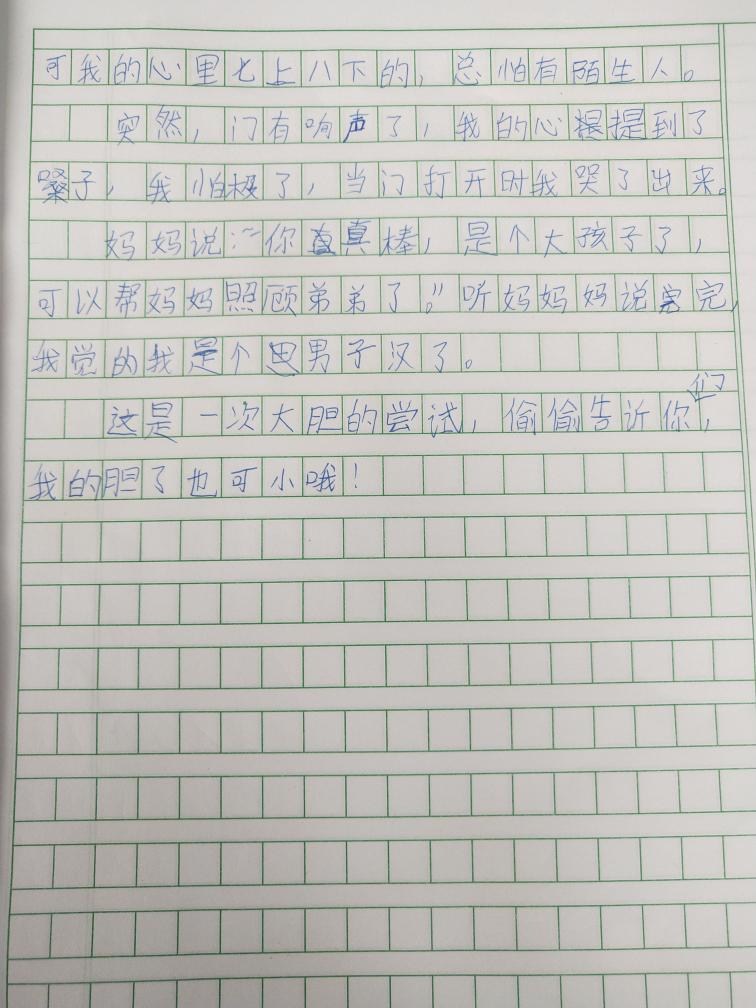 可我的心里七上八下的，总怕有陌生人。
突然，门有响声了，我的心提到了
嗓子，我怕极了，当门打开时我哭了出来。
妈妈说：“你真棒，是个大孩子了，
可以帮妈妈照顾弟弟了。”听妈妈妈说完，
我觉的我是个男子汉了。
这是一次大胆的尝试，偷偷告诉你们，
我的胆了也可小哦！